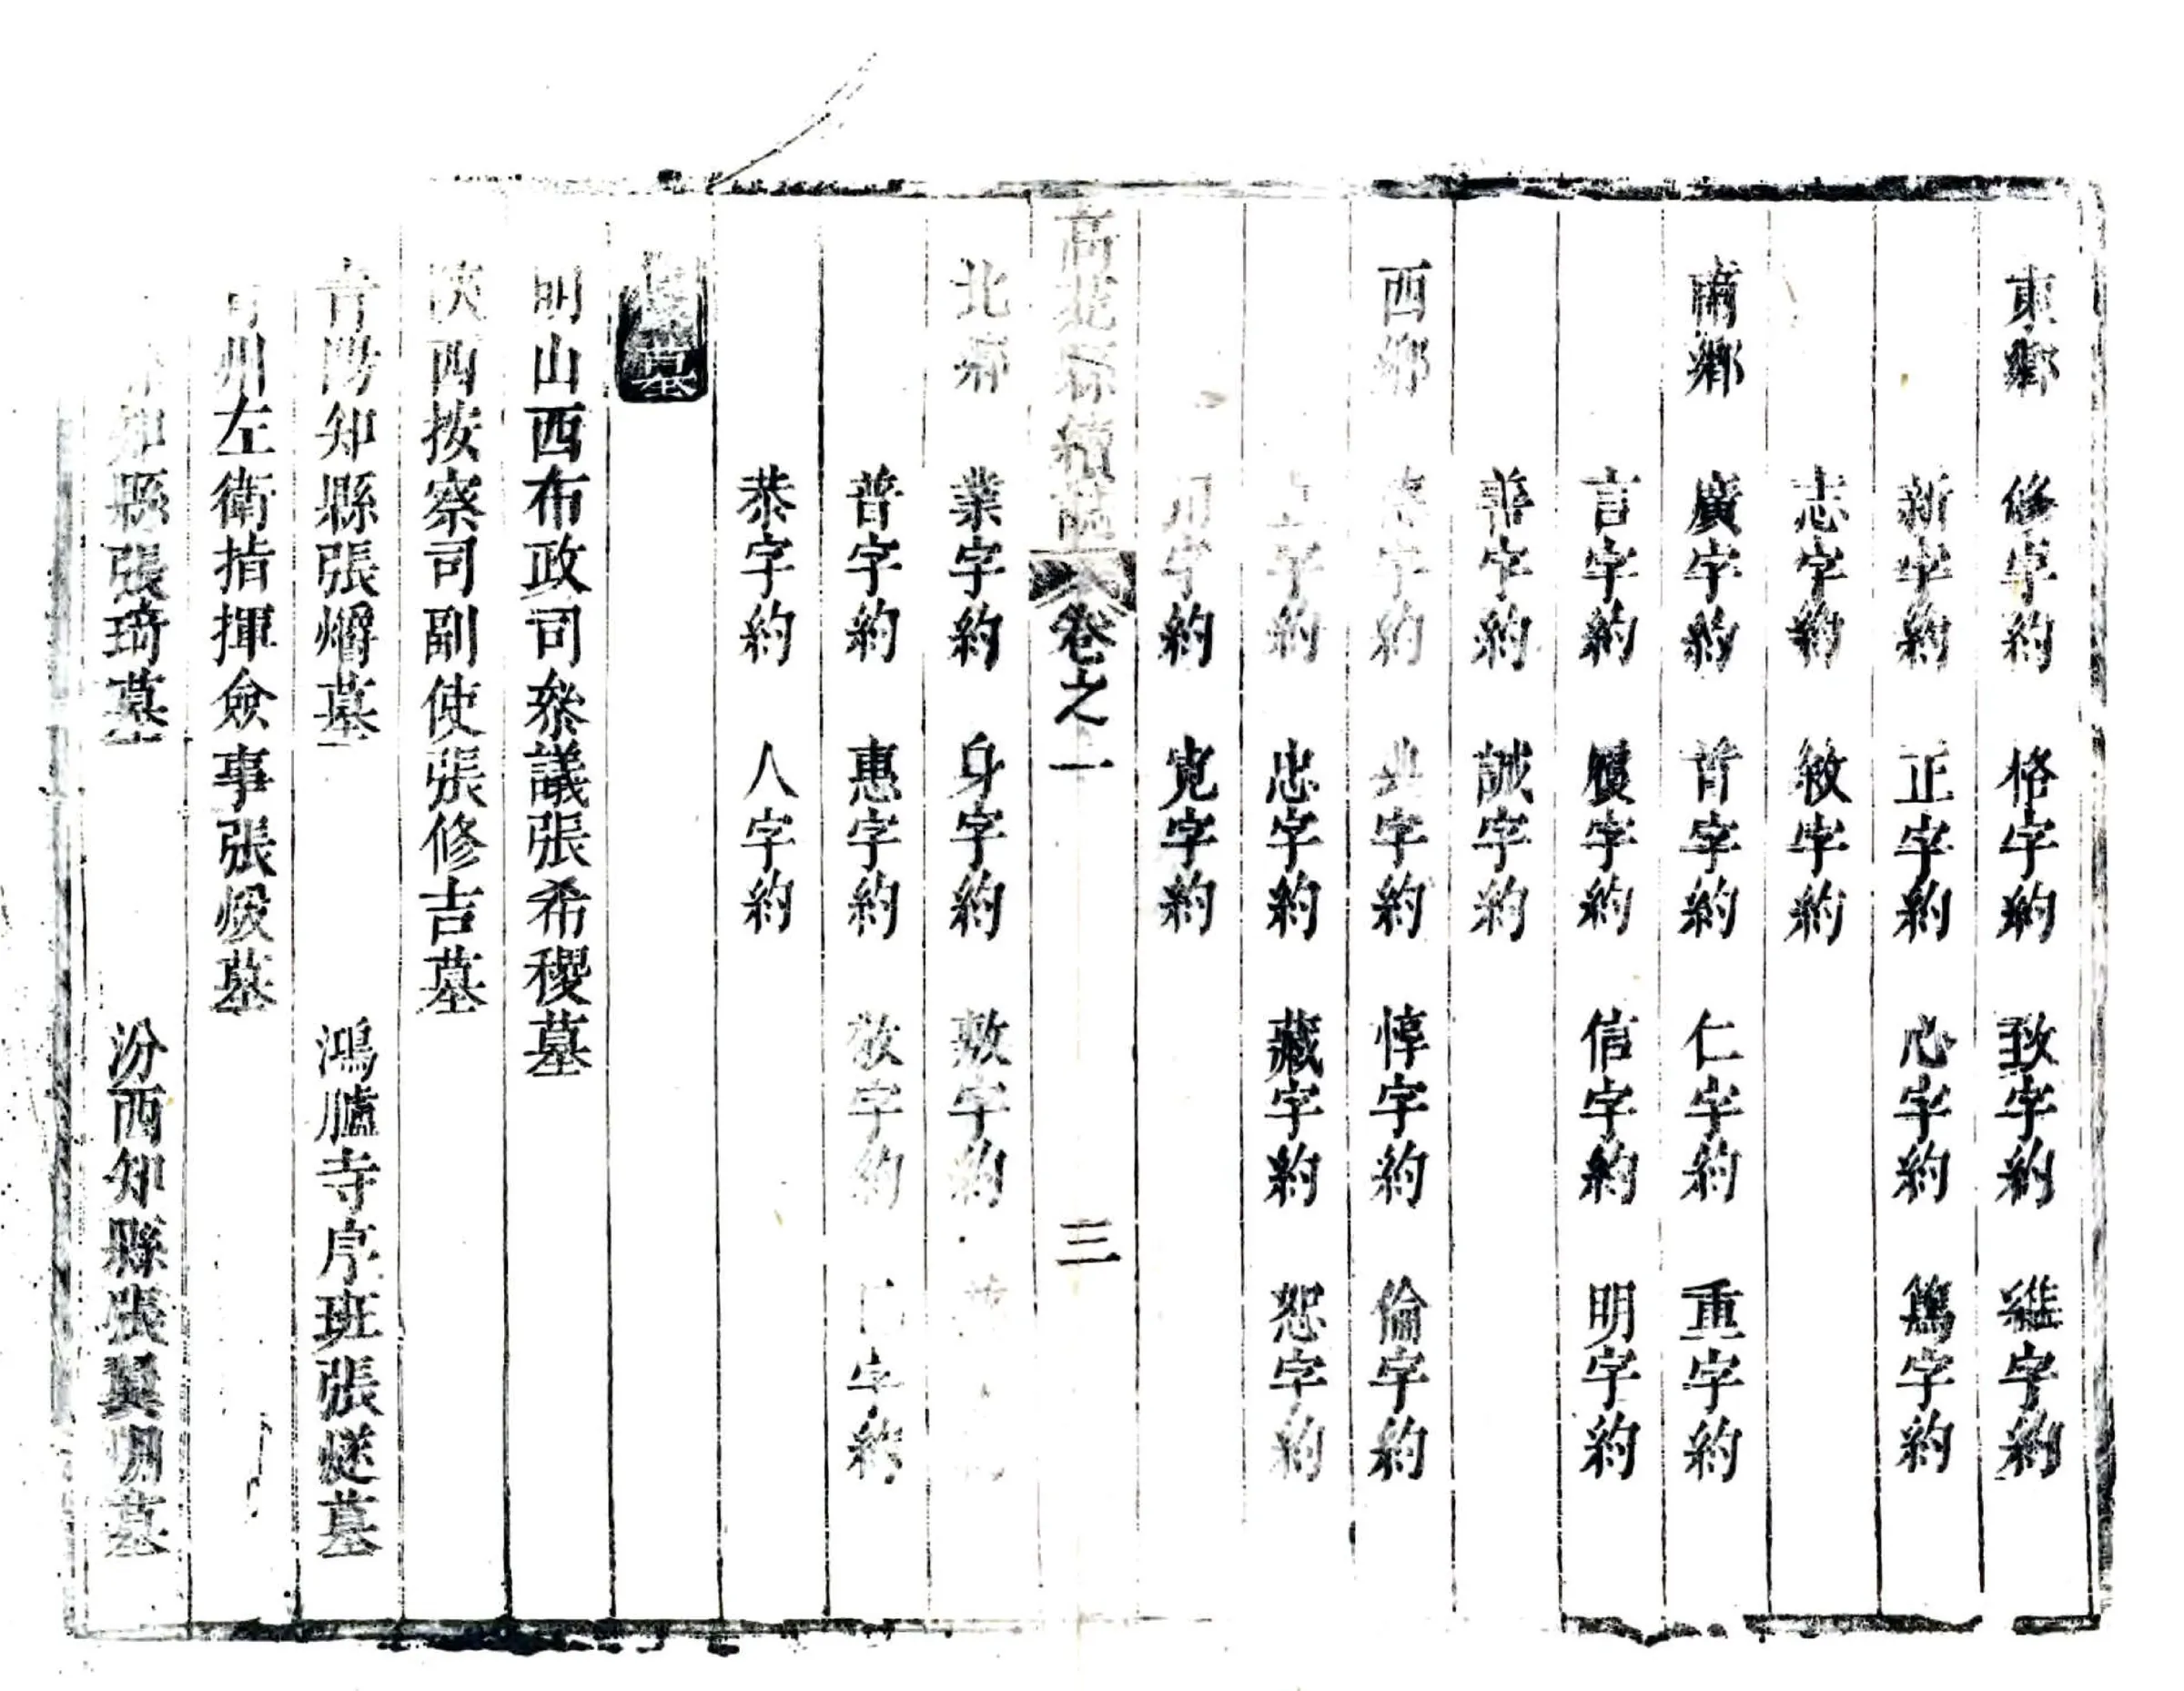 東鄉 修字約 格字約 致字約 維字約
新字約 正字約 心字約 篤字約
志字約 敏字約
南鄉 廣字約 背字約 仁字約 重字約
言字約 履字約 信字約 明字約
善字約 誠字約
西鄉 字約 字約 惇字約 倫字約
字約 忠字約 藏字約 恕字約
字約 寬字約
高苑縣續誌 卷之一 三
北鄉 業字約 身字約 敷字約
普字約 惠字約 字約 字約
恭字約 人字約
墓
明山西布政司叅議張希稷墓
陝西按察司副使張修吉墓
青陽知縣張爝墓 鴻臚寺序班張燧墓
州左衛指揮僉事張墓
知縣張琦墓 汾西知縣張翼明墓